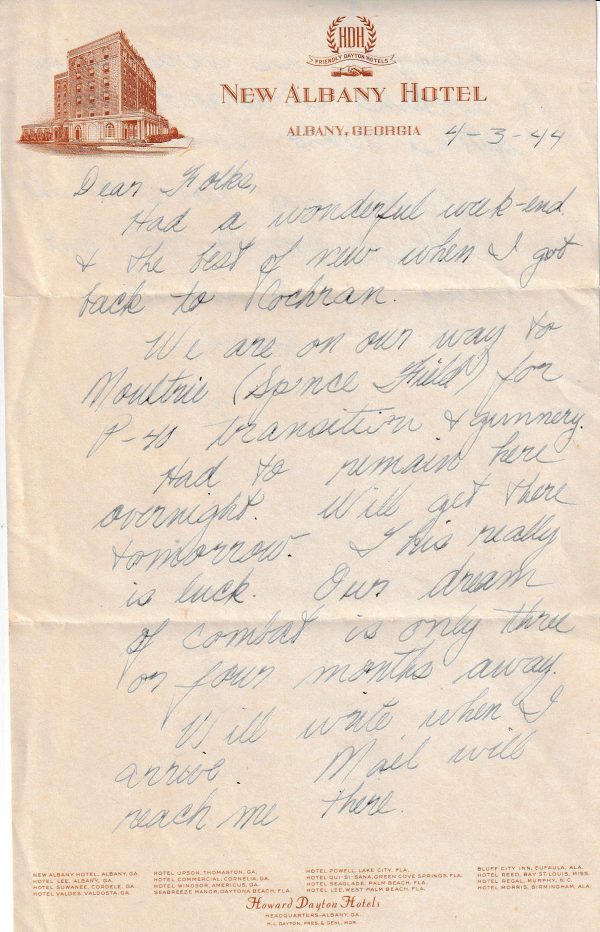 HDH
FRIENDLY DAYTON HOTELS
NEW ALBANY HOTEL
ALBANY, GEORGIA 4-3-44
Dear Folks,
Had a wonderful week-end
& the best of new when I got
back to Cochran.
We are on our way to
Moultrie (Spence Field) for
P-40 transition & gunnery.
Had to remain here
overnight. Will get there
tomorrow. This really
is luck. Our dream
of combat is only three
or four months away.
Will write when I
arrive. Mail will
reach me there.
NEW ALBANY HOTEL, ALBANY, GA.
HOTEL LEE, ALBANY, GA.
HOTEL SUWANEE, CORDELE, GA.
HOTEL VALDES, VALDOSTA, GA.
HOTEL UPSON, THOMASTON, GA.
HOTEL COMMERCIAL, CORNELIA, GA.
HOTEL WINDSOR, AMERICUS, GA.
SEABREEZE MANOR, DAYTONA BEACH, FLA.
HOTEL POWELL, LAKE CITY, FLA.
HOTEL QUI-SI-SANA, GREEN COVE SPRINGS, FLA.
HOTEL SEAGLADE, PALM BEACH, FLA.
HOTEL LEE, WEST PALM BEACH, FLA.
BLUFF CITY INN, EUFAULA, ALA.
HOTEL REED, BAY ST. LOUIS, MISS.
HOTEL REGAL, MURPHY, N. C.
HOTEL MORRIS, BIRMINGHAM, ALA.
Howard Dayton Hotels
HEADQUARTERS-ALBANY, GA.
H. L. DAYTON, PRES. & GENL. MGR.